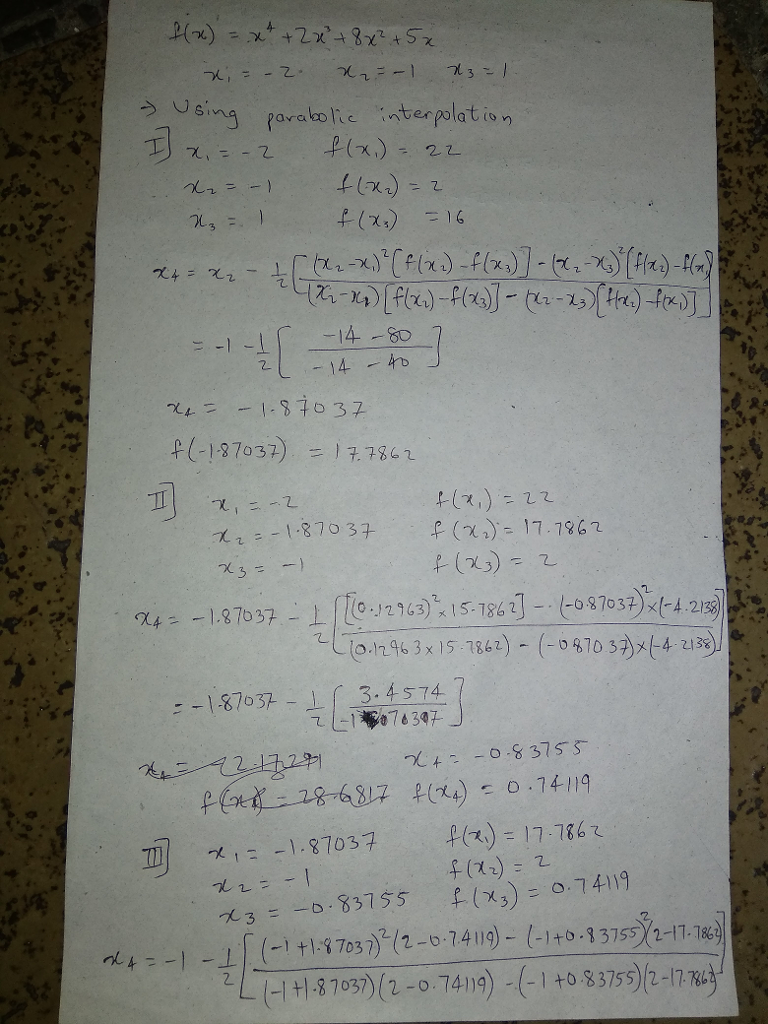 f(x) = x⁴ + 2x³ + 8x² + 5x
x₁ = -2 x₂ = -1 x₃ = 1
→ Using parabolic interpolation
I] x₁ = -2 f(x₁) = 22
x₂ = -1 f(x₂) = 2
x₃ = 1 f(x₃) = 16
x₄ = x₂ - 1/2 [ (x₂-x₁)² [f(x₂) - f(x₃)] - (x₂-x₃)² [f(x₂) - f(x₁) / (x₂-x₁) [f(x₂) - f(x₃)] - (x₂-x₃) [f(x₂) - f(x₁)] ]
= -1 - 1/2 [ -14 - 80 / -14 - 40 ]
x₄ = -1.87037
f(-1.87037) = 17.7862
II] x₁ = -2 f(x₁) = 22
x₂ = -1.87037 f(x₂) = 17.7862
x₃ = -1 f(x₃) = 2
x₄ = -1.87037 - 1/2 [ [(0.12963)² × 15.7862] - (-0.87037)² × (-4.2138) / (0.12963 × 15.7862) - (-0.87037) × (-4.2138) ]
= -1.87037 - 1/2 [ 3.4574 / ]
x₄ = x₄ = -0.83755
f(x₄) = 28.6817 f(x₄) = 0.74119
III] x₁ = -1.87037 f(x₁) = 17.7862
x₂ = -1 f(x₂) = 2
x₃ = -0.83755 f(x₃) = 0.74119
x₄ = -1 - 1/2 [ (-1 + 1.87037)² (2 - 0.74119) - (-1 + 0.83755)² (2 - 17.7862) / (-1 + 1.87037) (2 - 0.74119) - (-1 + 0.83755) (2 - 17.7862) ]